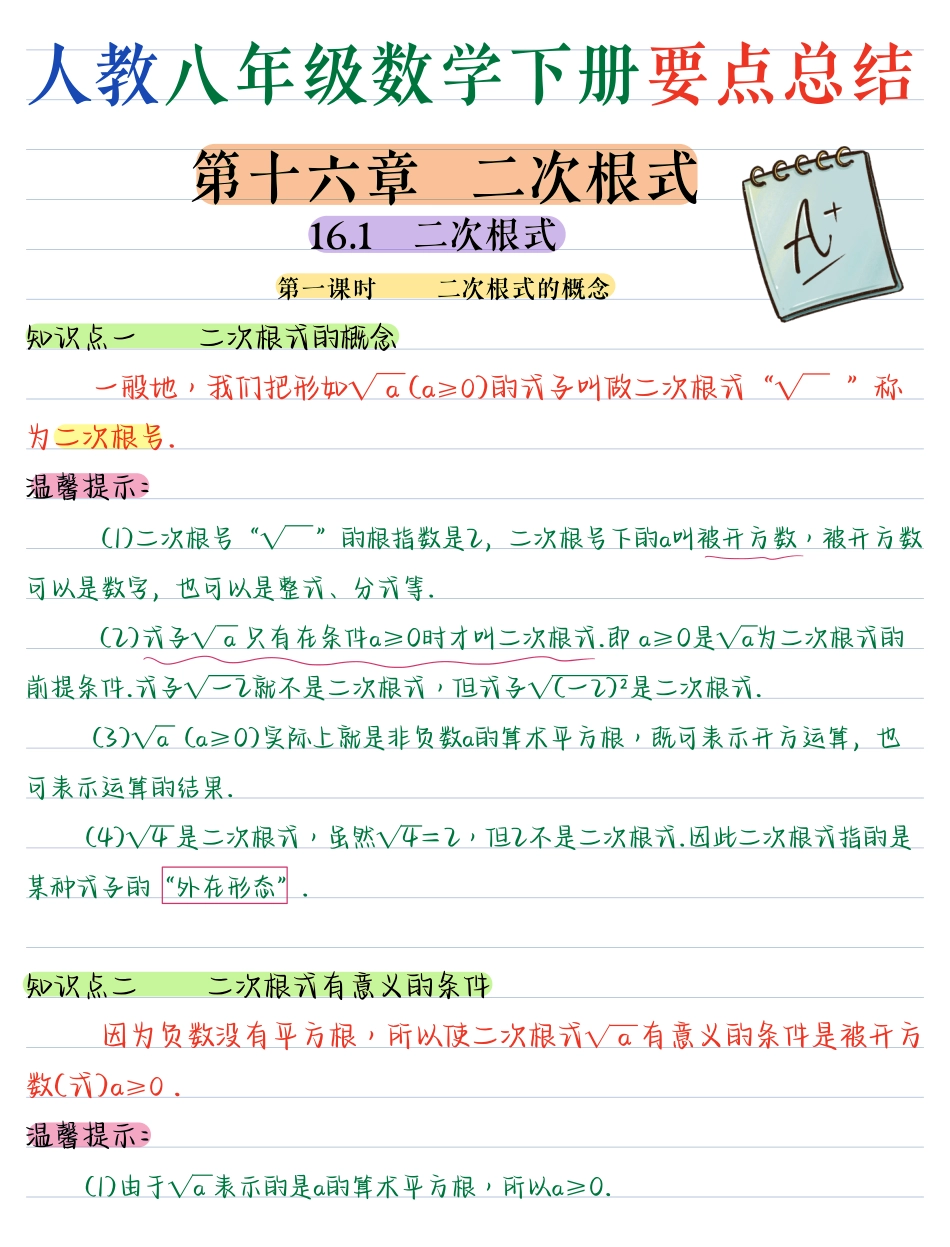 人教八年级数学下册要点总结
第十六章 二次根式
A+
16.1 二次根式
第一课时 二次根式的概念
知识点一 二次根式的概念
一般地，我们把形如√a(a≥0)的式子叫做二次根式“√ ”称
为二次根号.
温馨提示:
(1)二次根号“√ ”的根指数是2, 二次根号下的a叫被开方数，被开方数
可以是数字, 也可以是整式、分式等.
(2)式子√a 只有在条件a≥0时才叫二次根式.即 a≥0是√a为二次根式的
前提条件.式子√-2就不是二次根式，但式子√(-2)²是二次根式.
(3)√a (a≥0)实际上就是非负数a的算术平方根，既可表示开方运算, 也
可表示运算的结果.
(4)√4 是二次根式，虽然√4=2，但2不是二次根式.因此二次根式指的是
某种式子的 “外在形态” .
知识点二 二次根式有意义的条件
因为负数没有平方根，所以使二次根式√a 有意义的条件是被开方
数(式)a≥0 .
温馨提示:
(1)由于√a 表示的是a的算术平方根，所以a≥0.